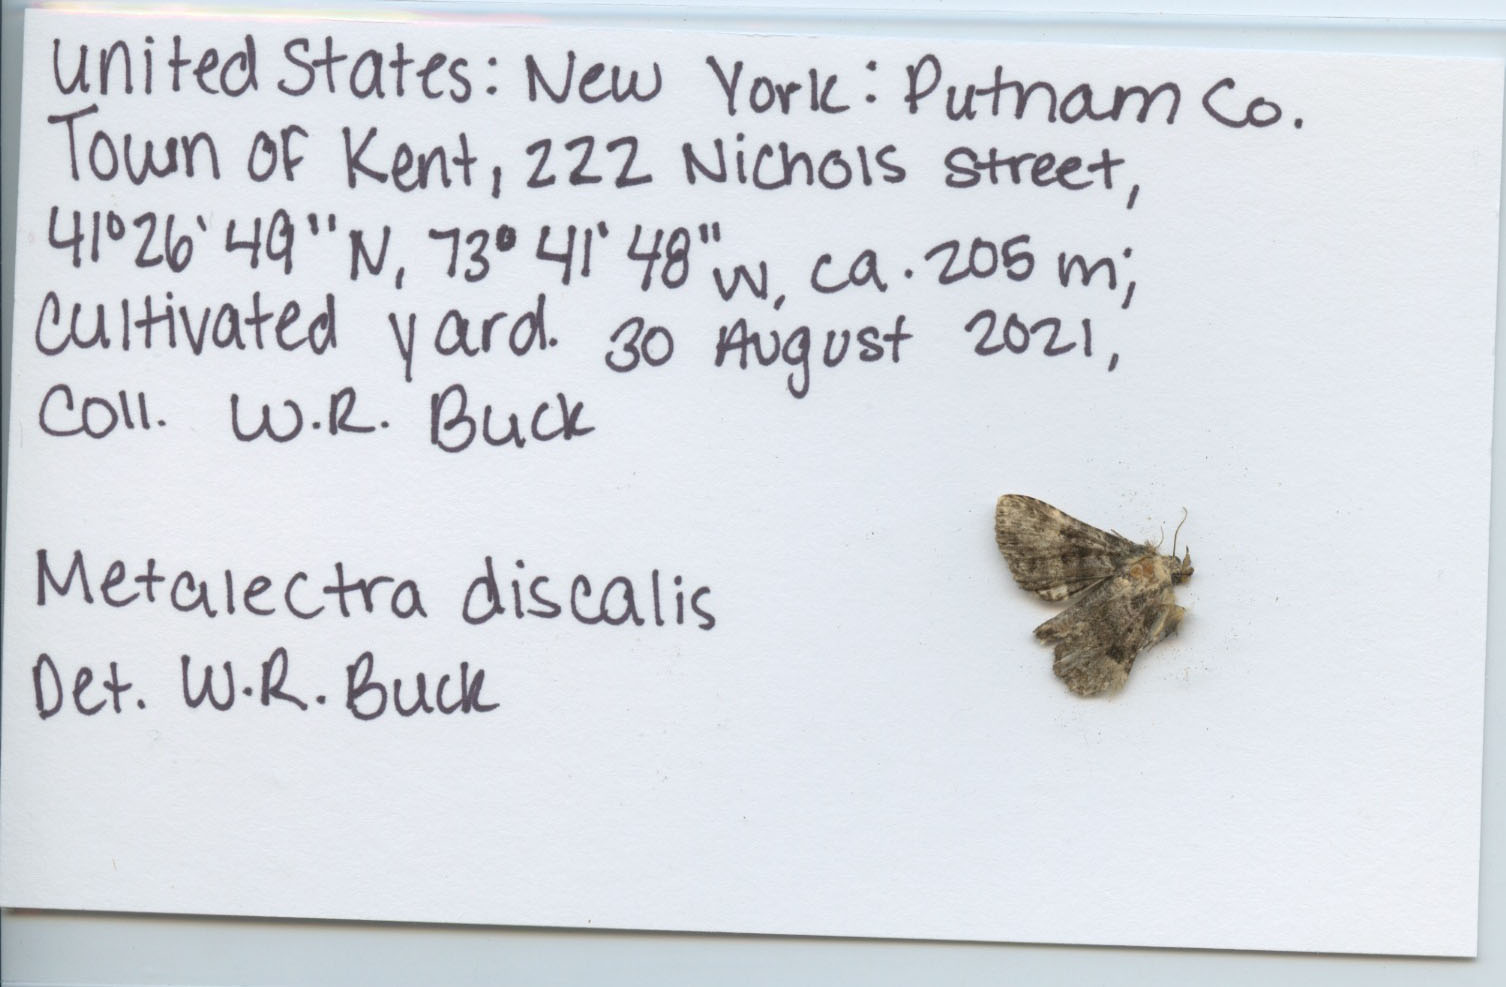 United States: New York: Putnam Co.
Town of Kent, 222 Nichols Street,
41°26'49"N, 73°41'48"W, ca. 205 m;
Cultivated yard. 30 August 2021,
Coll. W.R. Buck
Metalectra discalis
Det. W.R. Buck